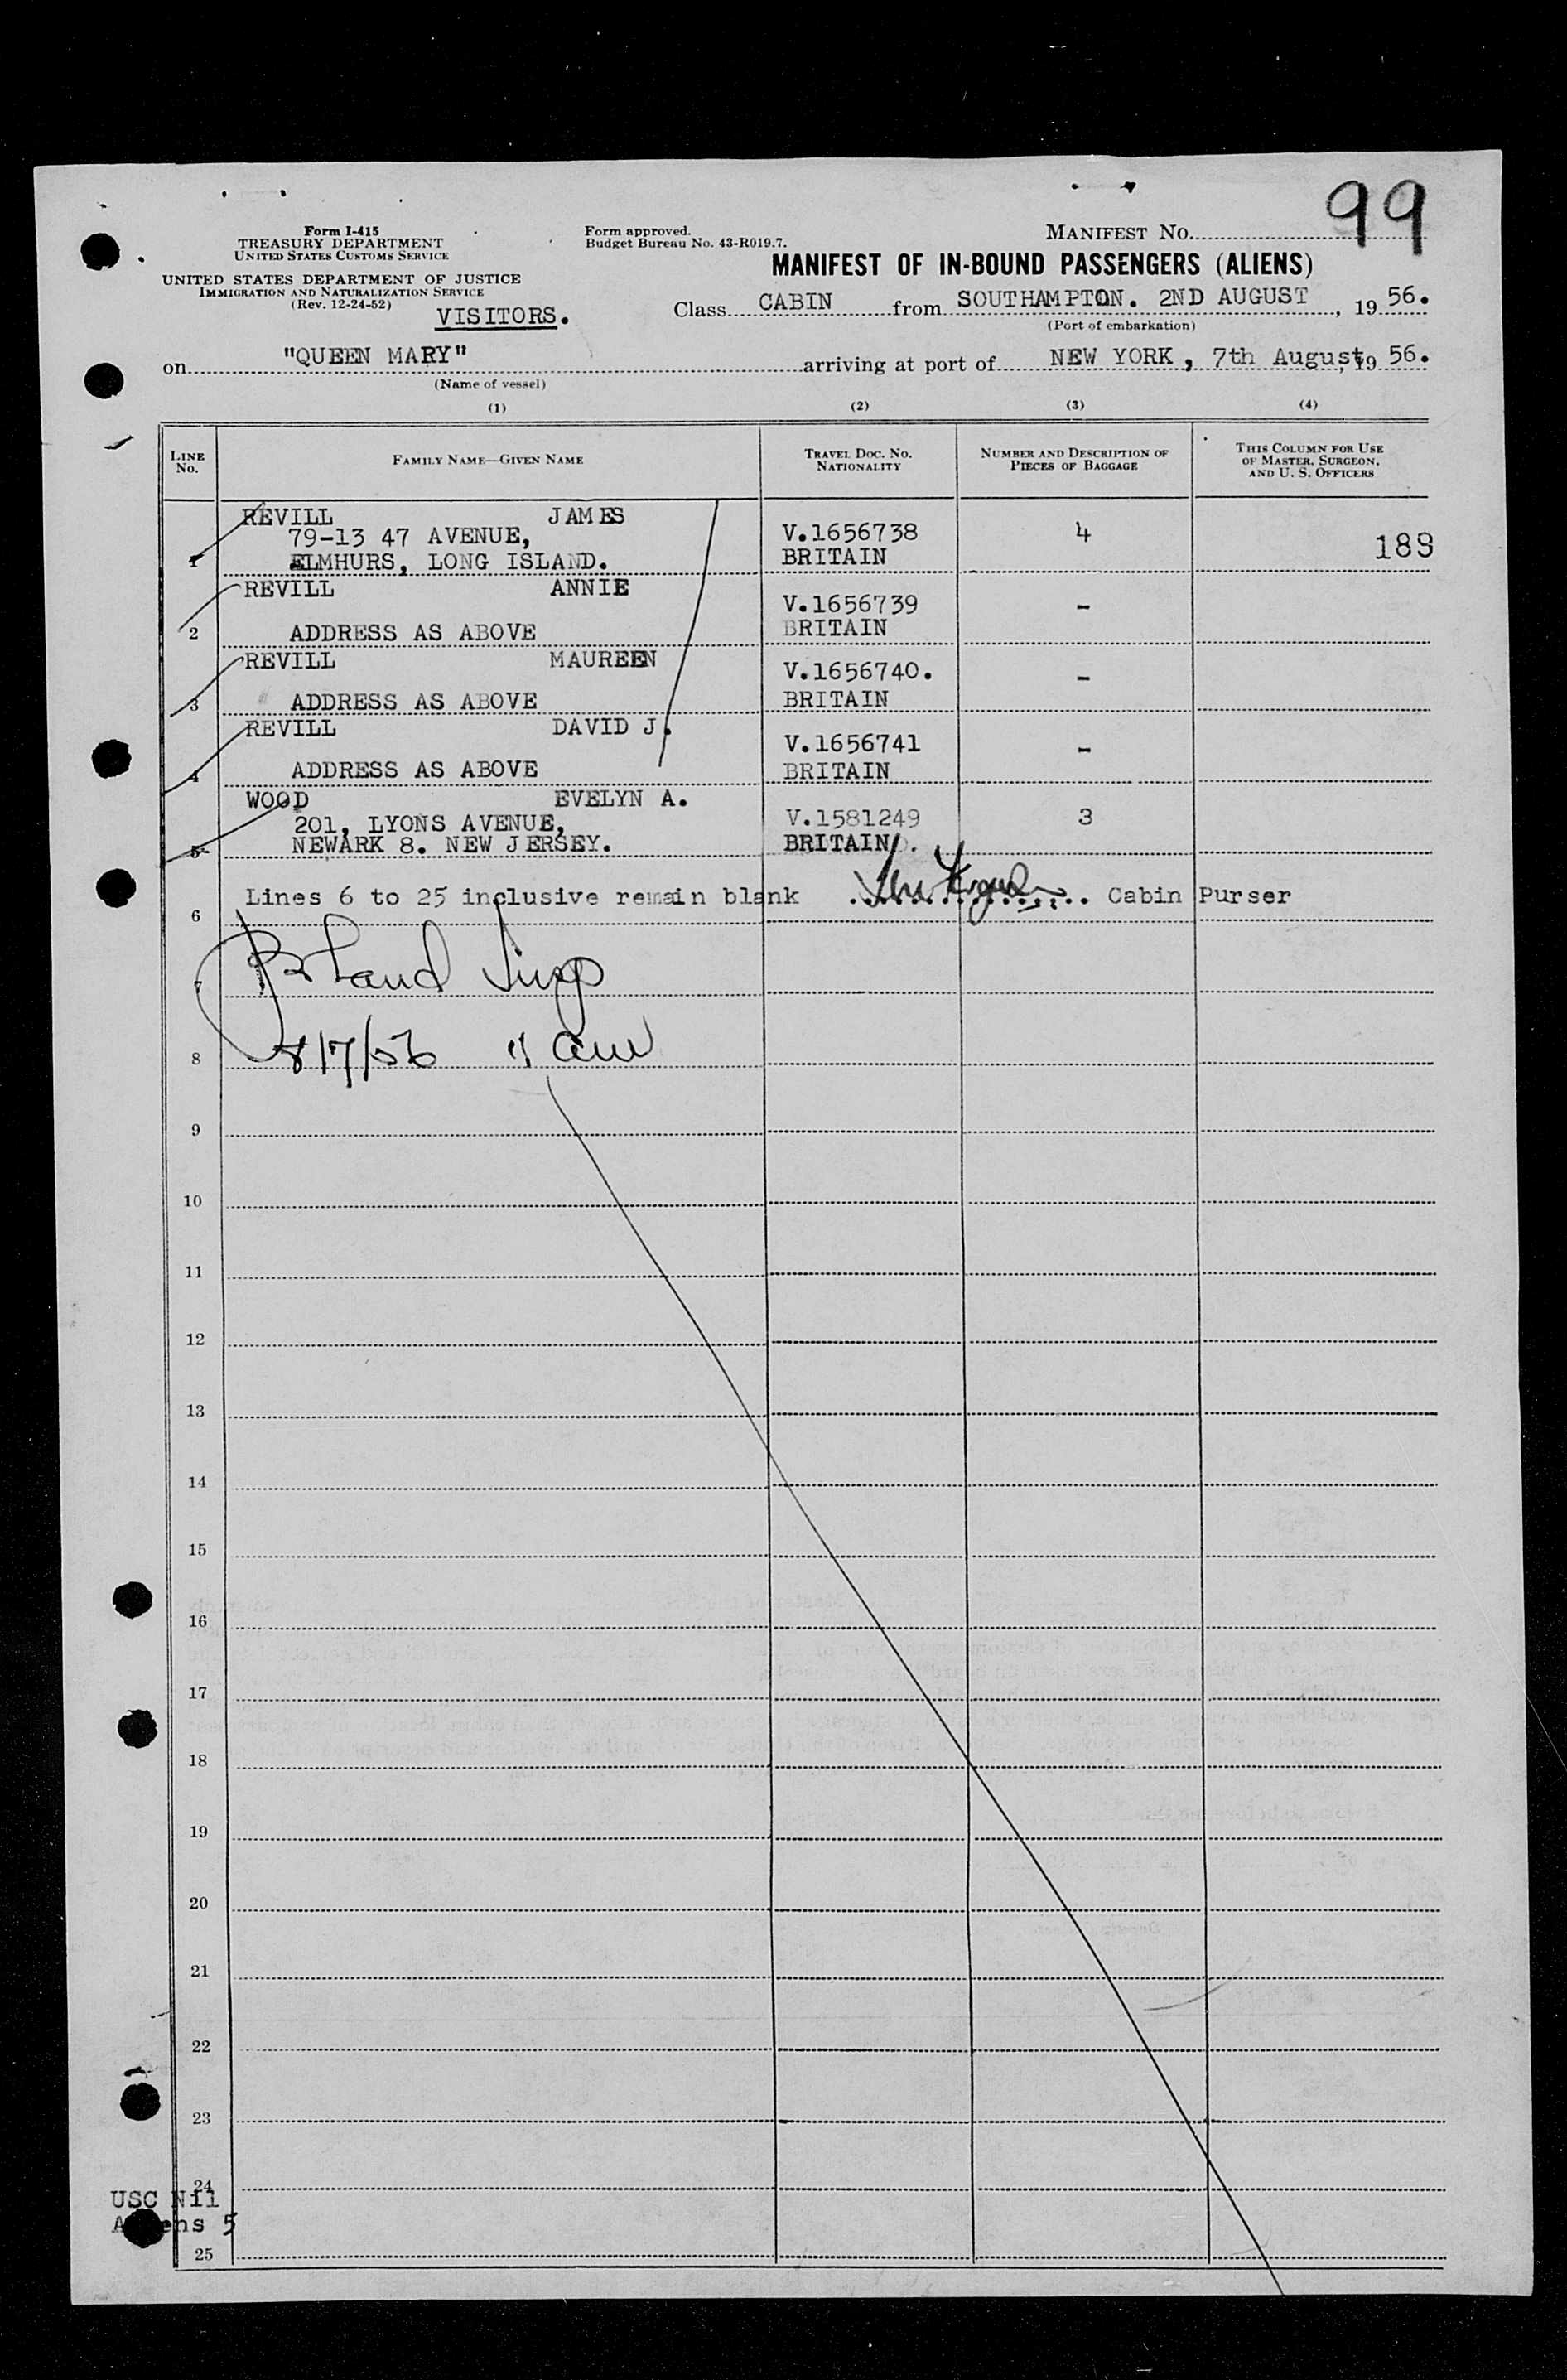 99
Form I-415
TREASURY DEPARTMENT
UNITED STATES CUSTOMS SERVICE
UNITED STATES DEPARTMENT OF JUSTICE
IMMIGRATION AND NATURALIZATION SERVICE
(Rev. 12-24-52)
VISITORS.
Form approved.
Budget Bureau No. 43-R019.7.
MANIFEST NO.
MANIFEST OF IN-BOUND PASSENGERS (ALIENS)
Class CABIN from SOUTHAMPTON. 2ND AUGUST, 19 56.
(Port of embarkation)
on "QUEEN MARY" arriving at port of NEW YORK, 7th August, 19 56.
(Name of vessel)
(1) (2) (3) (4)
LINE NO. FAMILY NAME—GIVEN NAME TRAVEL DOC. NO. NATIONALITY NUMBER AND DESCRIPTION OF PIECES OF BAGGAGE THIS COLUMN FOR USE OF MASTER, SURGEON, AND U. S. OFFICERS
REVILL JAMES
79-13 47 AVENUE, V.1656738 4
1 ELMHURS, LONG ISLAND. BRITAIN 189
REVILL ANNIE
V.1656739 -
2 ADDRESS AS ABOVE BRITAIN
REVILL MAUREEN
V.1656740. -
3 ADDRESS AS ABOVE BRITAIN
REVILL DAVID J.
V.1656741 -
4 ADDRESS AS ABOVE BRITAIN
WOOD EVELYN A.
201, LYONS AVENUE, V.1581249 3
5 NEWARK 8. NEW JERSEY. BRITAIN.
Lines 6 to 25 inclusive remain blank Cabin Purser
6
7
8 8/7/56
9
10
11
12
13
14
15
16
17
18
19
20
21
22
23
24
USC Nil
Aliens 5
25